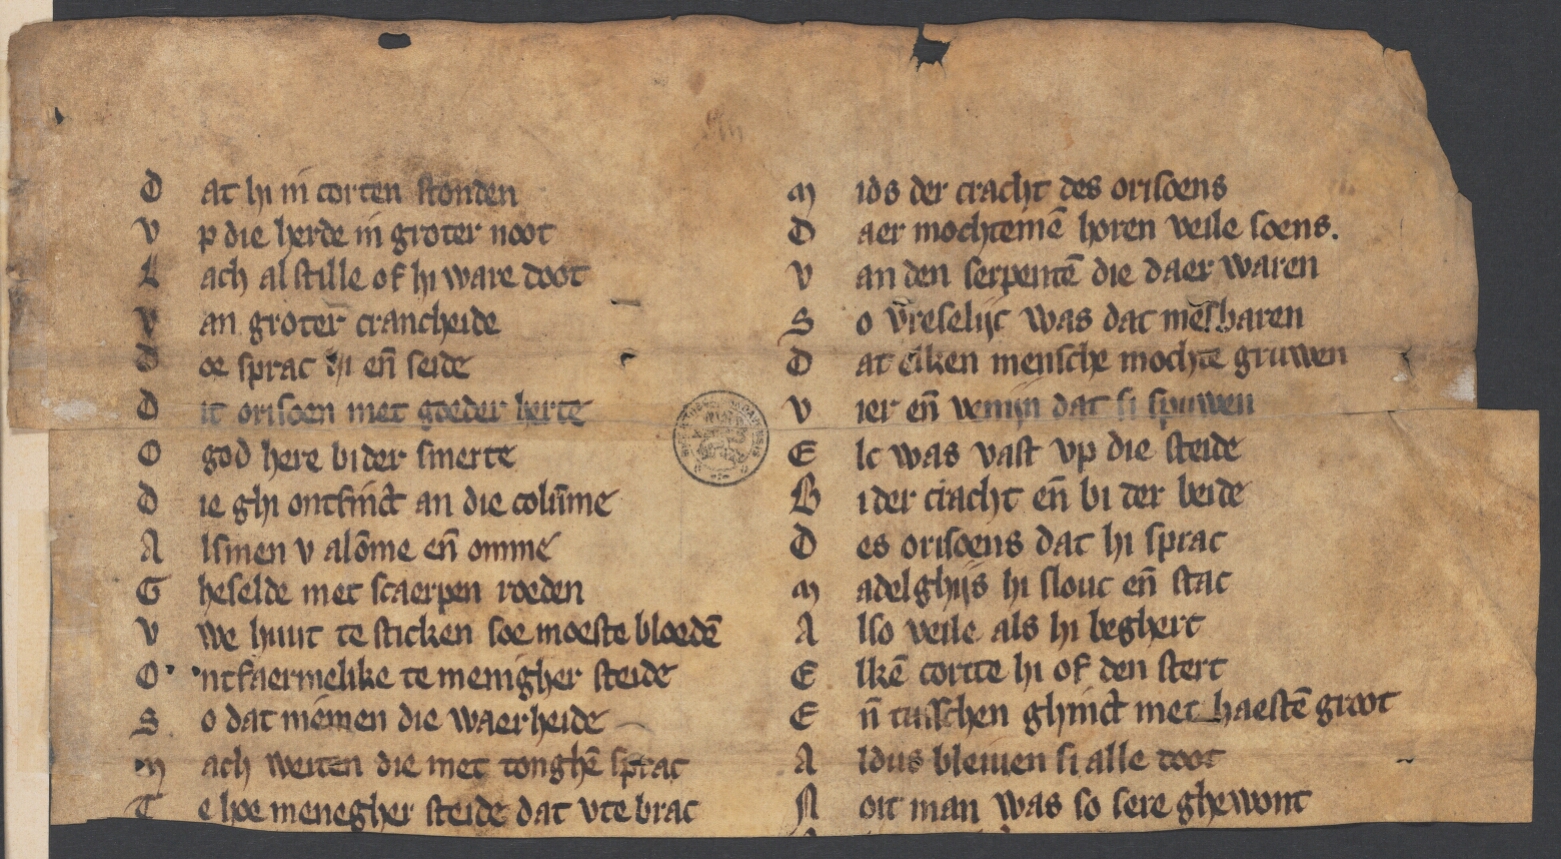 D at hi in corten stonden
V p die herde in groter noot
L ach al stille of hi ware doot
V an groter crancheide
D oe sprac hi en̄ seide
D it orisoen met goeder herte
O god here bi der smerte
D ie ghi ontfinct an die colūme
A lsmen v alōme en̄ omme
G heselde met scaerpen roeden
V we huut te sticken soe moeste bloedē
O ntfaermelike te menigher steide
S o dat niemen die waerheide
M ach weiten die met tonghē sprac
T e hoe menegher steide dat vte brac
M ids der cracht des orisoens
D aer mochtemē horen veile soens.
V an den serpentē die daer waren
S o v̄reselijc was dat mesbaren
D at elken mensche mochte gruwen
V ier en̄ venijn dat si spuwen
E lc was vast vp die steide
B i der cracht en̄ bi der beide
D es orisoens dat hi sprac
M adelghijs hi slouc en̄ stac
A lso veile als hi beghert
E lkē cortte hi of den stert
E n̄ tusschen ghinct met haestē groot
A ldus bleuuen si alle doot
N oit man was so sere ghewont